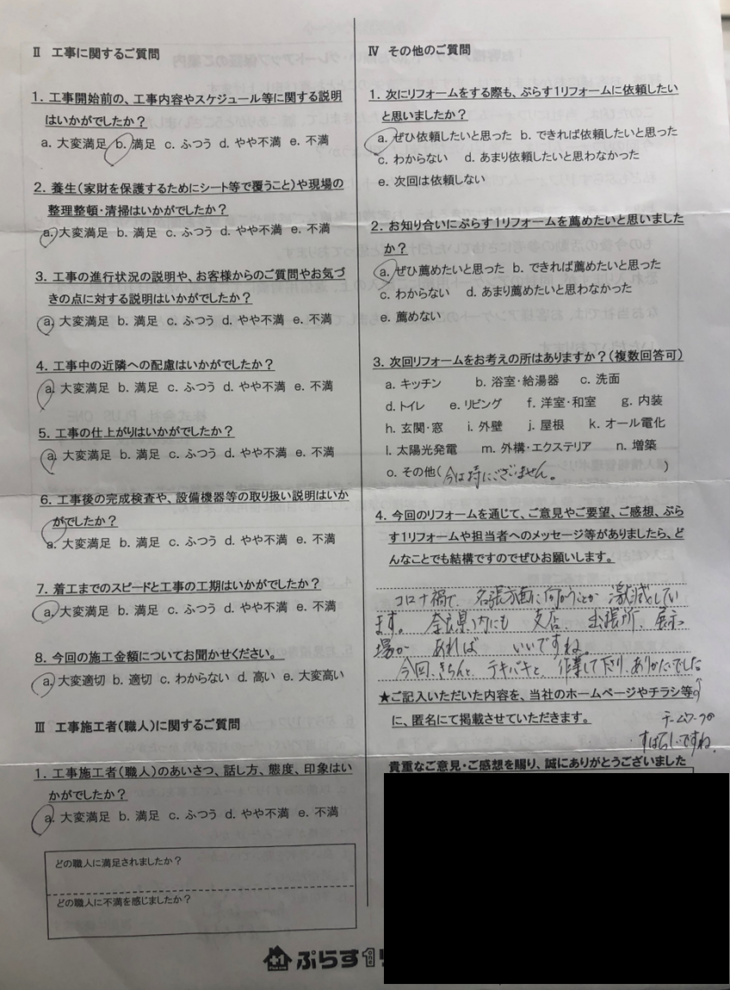 Ⅱ 工事に関するご質問
1. 工事開始前の、工事内容やスケジュール等に関する説明
はいかがでしたか？
a. 大変満足 b. 満足 c. ふつう d. やや不満 e. 不満
2. 養生(家財を保護するためにシート等で覆うこと)や現場の
整理整頓・清掃はいかがでしたか？
a. 大変満足 b. 満足 c. ふつう d. やや不満 e. 不満
3. 工事の進行状況の説明や、お客様からのご質問やお気づ
きの点に対する説明はいかがでしたか？
a. 大変満足 b. 満足 c. ふつう d. やや不満 e. 不満
4. 工事中の近隣への配慮はいかがでしたか？
a. 大変満足 b. 満足 c. ふつう d. やや不満 e. 不満
5. 工事の仕上がりはいかがでしたか？
a. 大変満足 b. 満足 c. ふつう d. やや不満 e. 不満
6. 工事後の完成検査や、設備機器等の取り扱い説明はいか
がでしたか？
a. 大変満足 b. 満足 c. ふつう d. やや不満 e. 不満
7. 着工までのスピードと工事の工期はいかがでしたか？
a. 大変満足 b. 満足 c. ふつう d. やや不満 e. 不満
8. 今回の施工金額についてお聞かせください。
a. 大変適切 b. 適切 c. わからない d. 高い e. 大変高い
Ⅲ 工事施工者(職人)に関するご質問
1. 工事施工者(職人)のあいさつ、話し方、態度、印象はい
かがでしたか？
a. 大変満足 b. 満足 c. ふつう d. やや不満 e. 不満
どの職人に満足されましたか？
どの職人に不満を感じましたか？
Ⅳ その他のご質問
1. 次にリフォームをする際も、ぷらす1リフォームに依頼したい
と思いましたか？
a. ぜひ依頼したいと思った b. できれば依頼したいと思った
c. わからない d. あまり依頼したいと思わなかった
e. 次回は依頼しない
2. お知り合いにぷらす1リフォームを薦めたいと思いました
か？
a. ぜひ薦めたいと思った b. できれば薦めたいと思った
c. わからない d. あまり薦めたいと思わなかった
e. 薦めない
3. 次回リフォームをお考えの所はありますか？(複数回答可)
a. キッチン b. 浴室・給湯器 c. 洗面
d. トイレ e. リビング f. 洋室・和室 g. 内装
h. 玄関・窓 i. 外壁 j. 屋根 k. オール電化
l. 太陽光発電 m. 外構・エクステリア n. 増築
o. その他(今は特にございません。)
4. 今回のリフォームを通じて、ご意見やご要望、ご感想、ぷら
す1リフォームや担当者へのメッセージ等がありましたら、ど
んなことでも結構ですのでぜひお願いします。
コロナ禍で、名張方面に向かうことが激減してい
ます。奈良県内にも支店、出張所、展示
場があればいいですね。
今回、きちんと、テキパキと、作業して下さりありがたいでした。
★ご記入いただいた内容を、当社のホームページやチラシ等
に、匿名にて掲載させていただきます。
チームワークが
すばらしいですね。
貴重なご意見・ご感想を賜り、誠にありがとうございました
ぷらす1リ